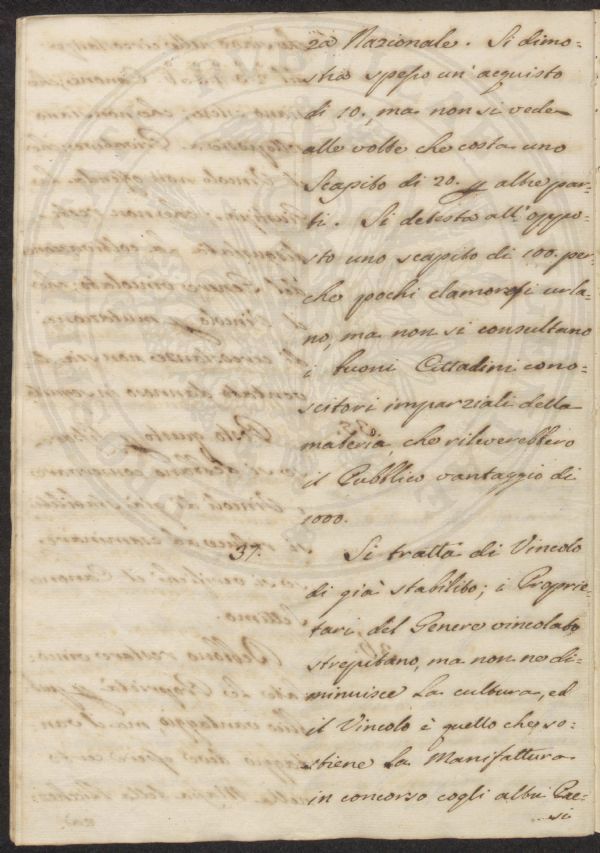 za Nazionale. Si dimo-
stra spesso un'acquisto
di 10., ma non si vede
alle volte che costa uno
Scapito di 20. per altre par-
ti. Si detesta all'oppo-
sto uno scapito di 100. per-
che pochi clamorosi urla-
no, ma non si consultano
i buoni Cittadini cono-
scitori imparziali della
materia, che rileverebbero
il Pubblico vantaggio di
1000.
37. Si tratta di Vincolo
di già stabilito; i Proprie-
tari del Genere vincolato
strepitano, ma non ne di-
minuisce la cultura, ed
il Vincolo è quello che so-
stiene la Manifattura
in concorso cogli altri Pae-
si